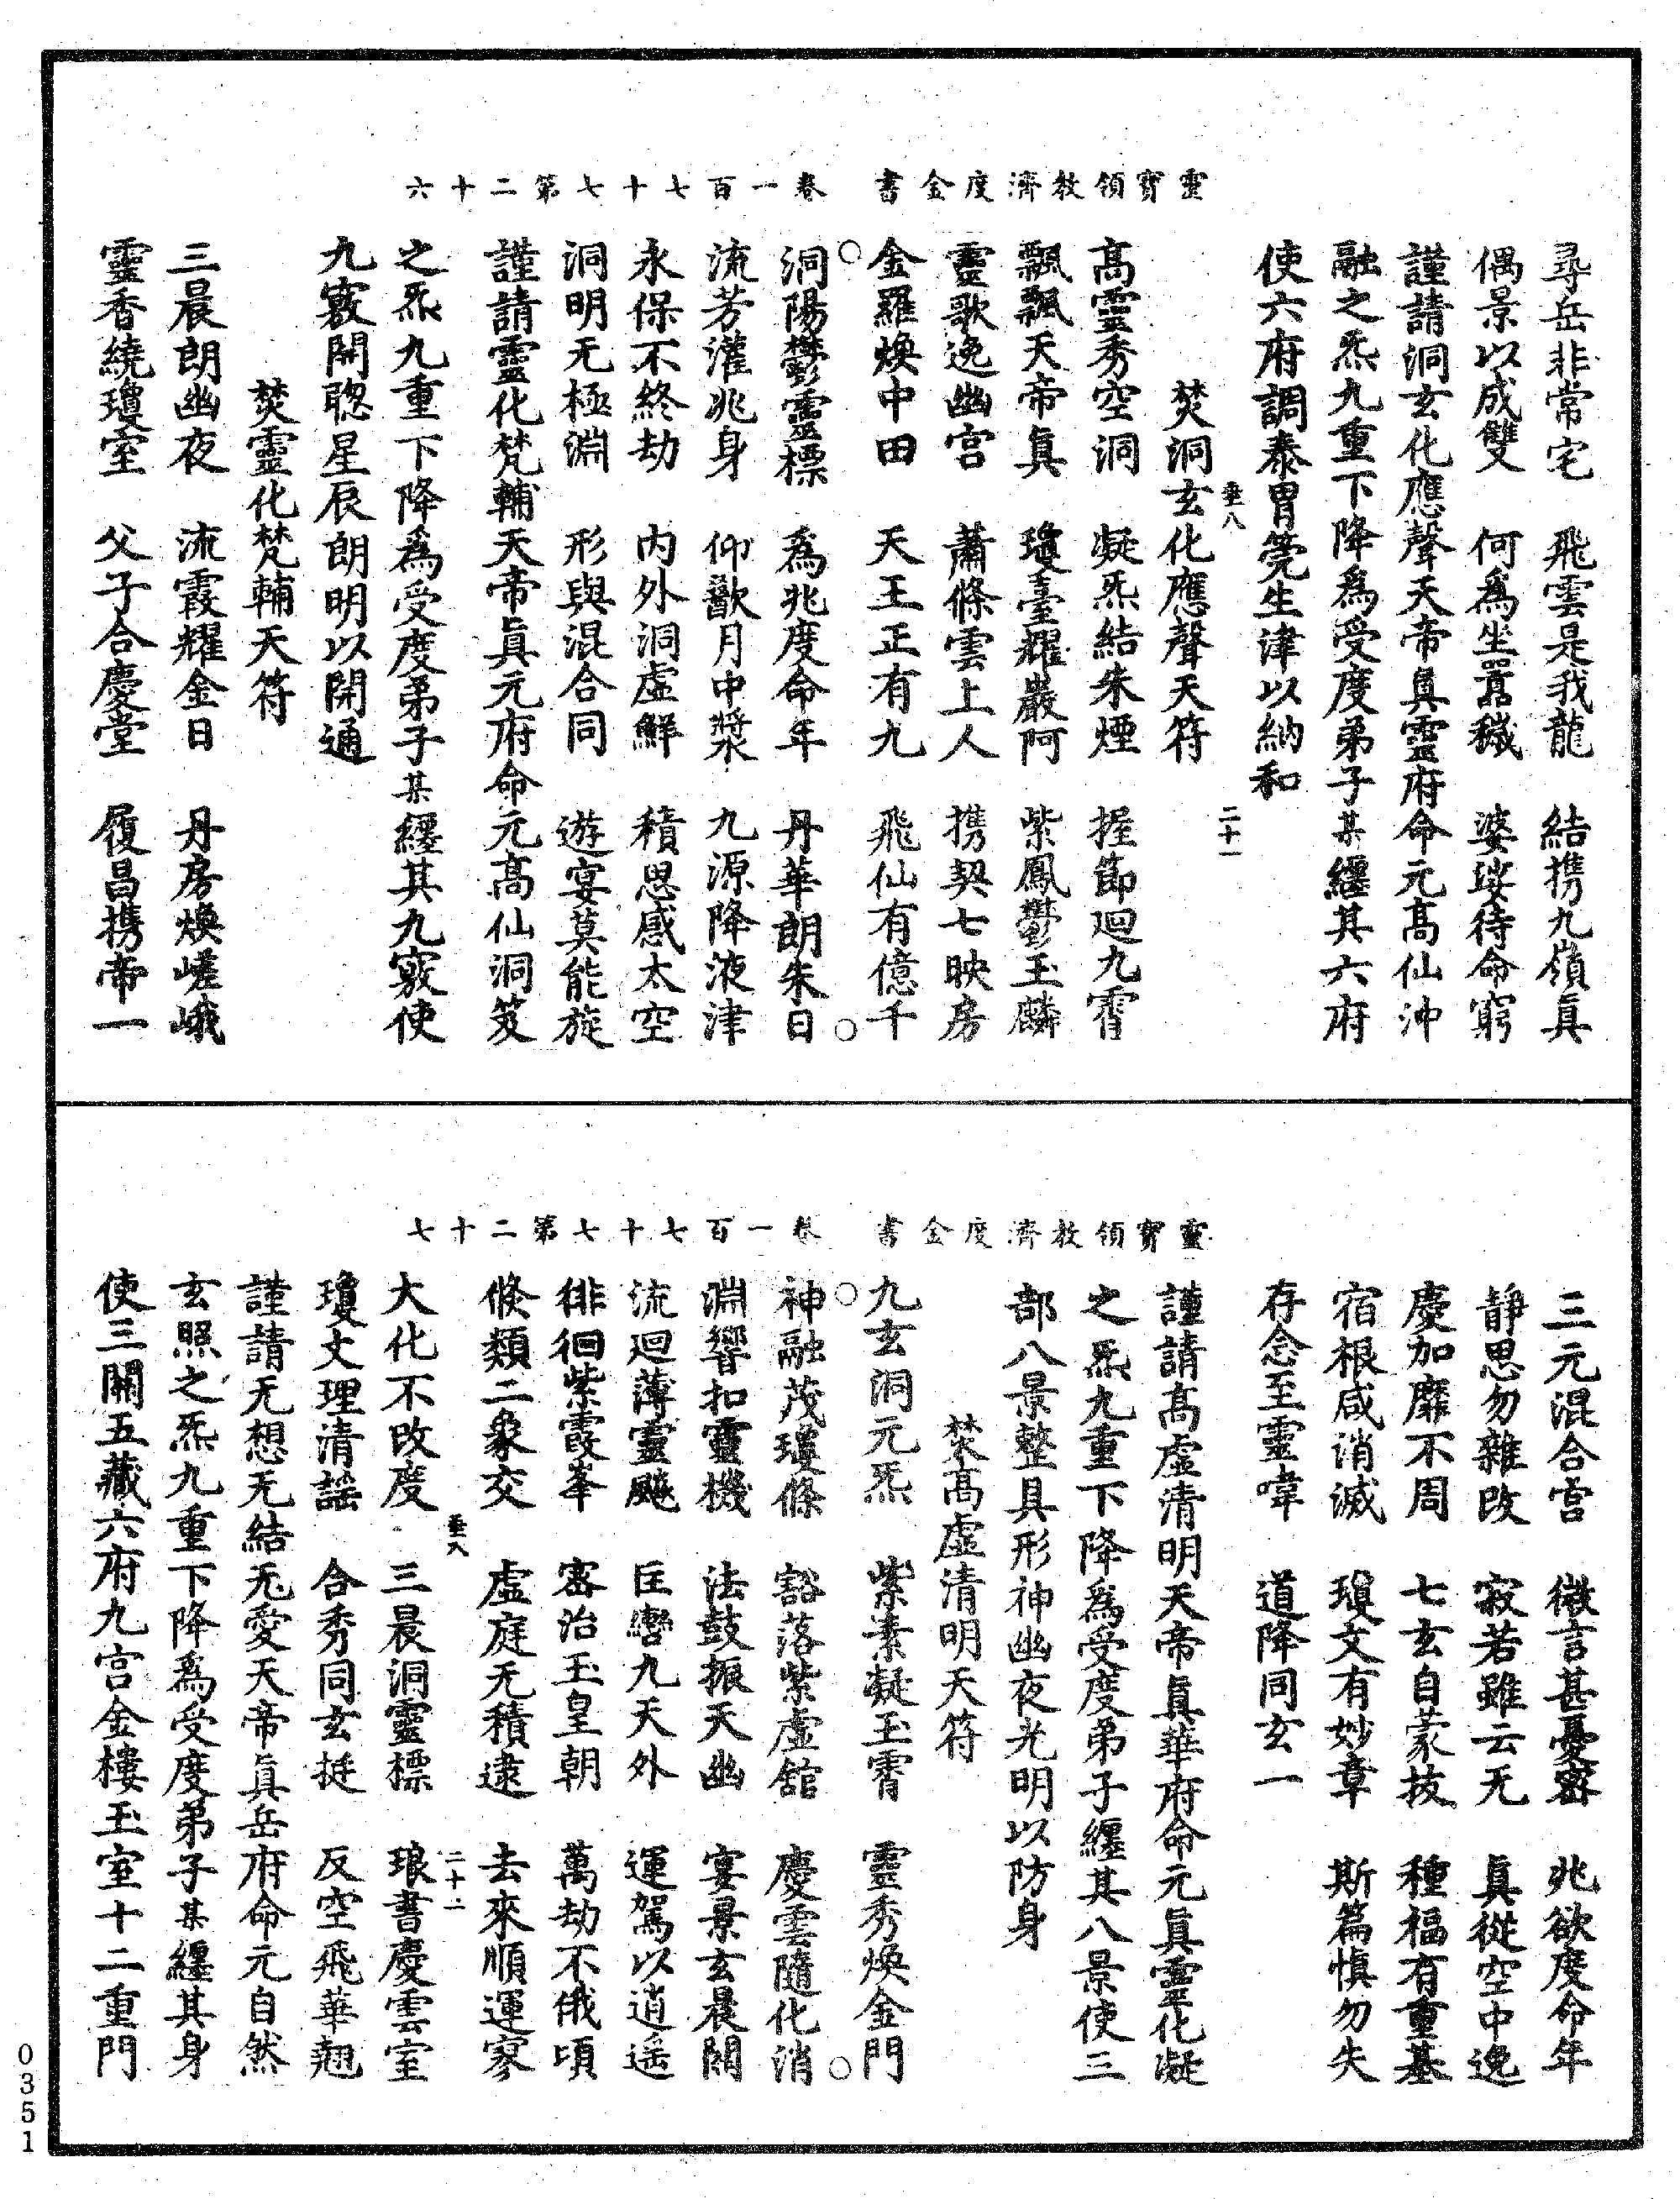 靈寶領教濟度金書　卷一百七十七第二十六
尋岳非常宅　飛雲是我龍　結携九嶺真
偶景以成雙　何爲坐囂穢　婆娑待命窮
謹請洞玄化應聲天帝眞靈府命元髙仙沖
融之炁九重下降爲受度弟子某纏其六府
使六府調泰胃筦生津以納和
垂八　二十一
焚洞玄化應聲天符
髙靈秀空洞　凝炁結朱煙　握節迴九霄
飄飄天帝眞　瓊臺耀巖阿　紫鳳鬱玉麟
靈歌逸幽宫　蕭條雲上人　携契七映房
金羅煥中田　天王正有九　飛仙有億千
洞陽鬱靈標　爲兆度命年　丹華朗朱日
流芳灌兆身　仰歠月中漿　九源降液津
永保不終劫　内外洞虚鮮　積思感太空
洞明无極淵　形與混合同　遊宴莫能旋
謹請靈化梵輔天帝眞元府命元髙仙洞笈
之炁九重下降爲受度弟子某纏其九竅使
九竅開聦星辰朗明以開通
焚靈化梵輔天符
三晨朗幽夜　流霞耀金日　丹房煥嵯峨
靈香繞瓊室　父子合慶堂　履昌携帝一
靈寶領教濟度金書　卷一百七十七第二十七
三元混合宫　微言甚憂密　兆欲度命年
靜思勿雜改　寂若雖云无　眞從空中逸
慶加靡不周　七玄自蒙拔　種福有重基
宿根咸消滅　瓊文有妙章　斯篇慎勿失
存念至靈嘩　道降同玄一
謹請髙虚清明天帝眞華府命元眞靈化凝
之炁九重下降爲受度弟子纏其八景使三
部八景整具形神幽夜光明以防身
焚髙虚清明天符
九玄洞元炁　紫素凝玉霄　靈秀煥金門
神融茂瓊條　豁落紫虚舘　慶雲隨化消
淵響扣靈機　法鼓振天幽　宴景玄晨闕
流迴薄靈飈　巨轡九天外　運駕以逍遥
徘徊紫霞峯　密治玉皇朝　萬劫不俄頃
倏類二象交　虚庭无積逮　去來順運寥
垂八　二十二
大化不改度　三晨洞靈標　琅書慶雲室
瓊文理清謡　合秀同玄挺　反空飛華翹
謹請无想无結无愛天帝眞岳府命元自然
玄照之炁九重下降爲受度弟子某纏其身
使三關五藏六府九宫金樓玉室十二重門
0351